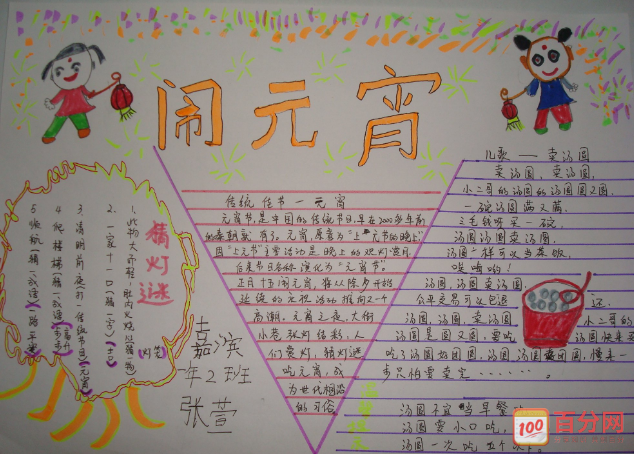 闹元宵
传统佳节一元宵
元宵节,是中国的传统节日,早在2000多年前
的秦朝就有了。元宵,原意为"上元节的晚上"
因"上元节"主要活动是晚上的观灯赏月
后来节日名称演化为"元宵节"。
正月十五闹元宵,将从除夕开始
延续的庆祝活动推向又一个
高潮。元宵之夜,大街
小巷张灯结彩,人
们赏灯,猜灯谜
吃元宵,成
为世代相沿
的习俗
儿歌——卖汤圆
卖汤圆,卖汤圆,
小二哥的汤圆的汤圆圆又圆
一碗汤圆满又满
三毛钱呀买一碗,
汤圆汤圆卖汤圆,
汤圆一样可以当茶饭,
哎唷哟!
汤圆,汤圆卖汤圆
公平交易可以包退 还
汤圆,汤圆,卖汤圆 小二哥的
汤圆是圆又圆,要吃 汤圆快来买
吃了汤圆好团圆,汤圆,汤圆 慢来一
步只怕要卖完……。
汤圆不宜当早餐
汤圆要小口吃,
汤圆一次吃五个
猜灯谜
2.一家十一口(猜一字)(吉)
3.清明前夜(打一传统节日)(元宵)
4.爬楼梯(猜一成语)(步步高升)
(灯笼)
嘉滨
一年2班
张萱
100百分网